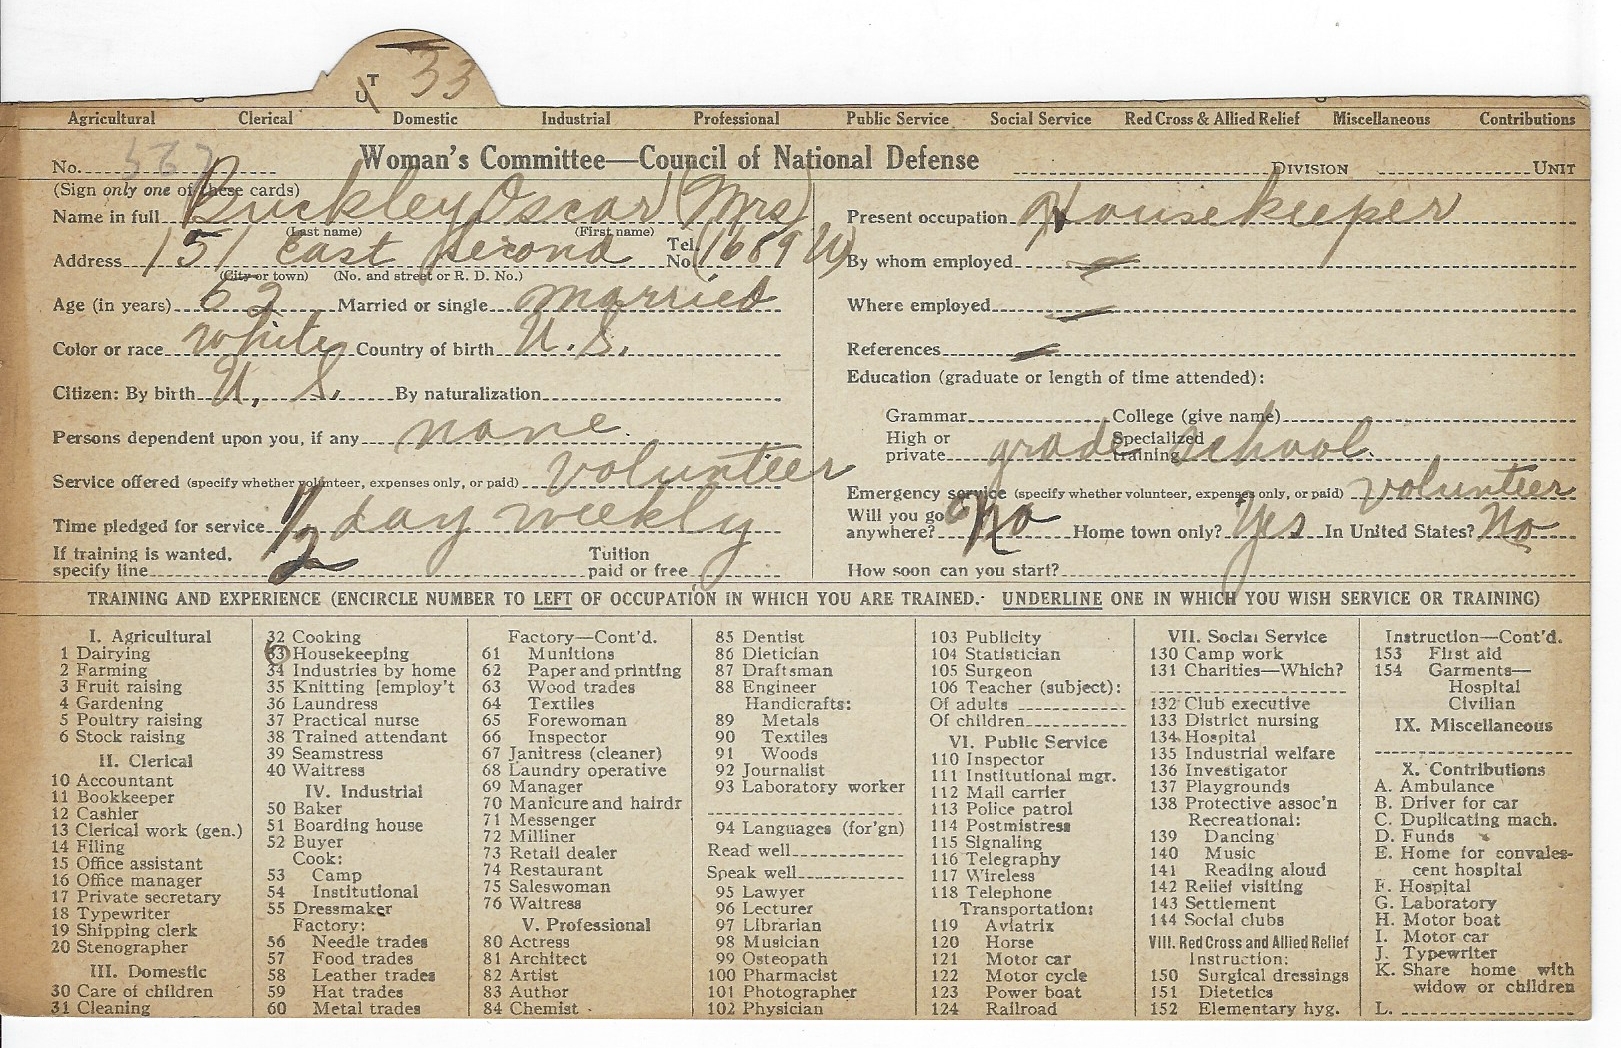 T 33
U
Agricultural Clerical Domestic Industrial Professional Public Service Social Service Red Cross & Allied Relief Miscellaneous Contributions
No. 567 Woman's Committee—Council of National Defense DIVISION UNIT
(Sign only one of these cards)
Name in full Buckley Oscar (Mrs)
(Last name) (First name)
Address 151 East Second Tel. No. (1689 W)
(City or town) (No. and street or R. D. No.)
Age (in years) 62 Married or single married
Color or race white Country of birth U. S.
Citizen: By birth U. S. By naturalization
Persons dependent upon you, if any none.
Service offered (specify whether volunteer, expenses only, or paid) volunteer
Time pledged for service 1/2 day weekly
If training is wanted, specify line Tuition paid or free
Present occupation Housekeeper
By whom employed —
Where employed —
References —
Education (graduate or length of time attended):
Grammar College (give name)
High or private grade school Specialized training
Emergency service (specify whether volunteer, expenses only, or paid) volunteer
Will you go anywhere? No Home town only? Yes In United States? No
How soon can you start?
TRAINING AND EXPERIENCE (ENCIRCLE NUMBER TO LEFT OF OCCUPATION IN WHICH YOU ARE TRAINED. UNDERLINE ONE IN WHICH YOU WISH SERVICE OR TRAINING)
I. Agricultural
1 Dairying
2 Farming
3 Fruit raising
4 Gardening
5 Poultry raising
6 Stock raising
II. Clerical
10 Accountant
11 Bookkeeper
12 Cashier
13 Clerical work (gen.)
14 Filing
15 Office assistant
16 Office manager
17 Private secretary
18 Typewriter
19 Shipping clerk
20 Stenographer
III. Domestic
30 Care of children
31 Cleaning
32 Cooking
33 Housekeeping
34 Industries by home
35 Knitting [employ't
36 Laundress
37 Practical nurse
38 Trained attendant
39 Seamstress
40 Waitress
IV. Industrial
50 Baker
51 Boarding house
52 Buyer
Cook:
53 Camp
54 Institutional
55 Dressmaker
Factory:
56 Needle trades
57 Food trades
58 Leather trades
59 Hat trades
60 Metal trades
Factory—Cont'd.
61 Munitions
62 Paper and printing
63 Wood trades
64 Textiles
65 Forewoman
66 Inspector
67 Janitress (cleaner)
68 Laundry operative
69 Manager
70 Manicure and hairdr
71 Messenger
72 Milliner
73 Retail dealer
74 Restaurant
75 Saleswoman
76 Waitress
V. Professional
80 Actress
81 Architect
82 Artist
83 Author
84 Chemist
85 Dentist
86 Dietician
87 Draftsman
88 Engineer
Handicrafts:
89 Metals
90 Textiles
91 Woods
92 Journalist
93 Laboratory worker
94 Languages (for'gn)
Read well
Speak well
95 Lawyer
96 Lecturer
97 Librarian
98 Musician
99 Osteopath
100 Pharmacist
101 Photographer
102 Physician
103 Publicity
104 Statistician
105 Surgeon
106 Teacher (subject):
Of adults
Of children
VI. Public Service
110 Inspector
111 Institutional mgr.
112 Mail carrier
113 Police patrol
114 Postmistress
115 Signaling
116 Telegraphy
117 Wireless
118 Telephone
Transportation:
119 Aviatrix
120 Horse
121 Motor car
122 Motor cycle
123 Power boat
124 Railroad
VII. Social Service
130 Camp work
131 Charities—Which?
132 Club executive
133 District nursing
134 Hospital
135 Industrial welfare
136 Investigator
137 Playgrounds
138 Protective assoc'n
Recreational:
139 Dancing
140 Music
141 Reading aloud
142 Relief visiting
143 Settlement
144 Social clubs
VIII. Red Cross and Allied Relief
Instruction:
150 Surgical dressings
151 Dietetics
152 Elementary hyg.
Instruction—Cont'd.
153 First aid
154 Garments—
Hospital
Civilian
IX. Miscellaneous
X. Contributions
A. Ambulance
B. Driver for car
C. Duplicating mach.
D. Funds
E. Home for convales-
cent hospital
F. Hospital
G. Laboratory
H. Motor boat
I. Motor car
J. Typewriter
K. Share home with
widow or children
L.